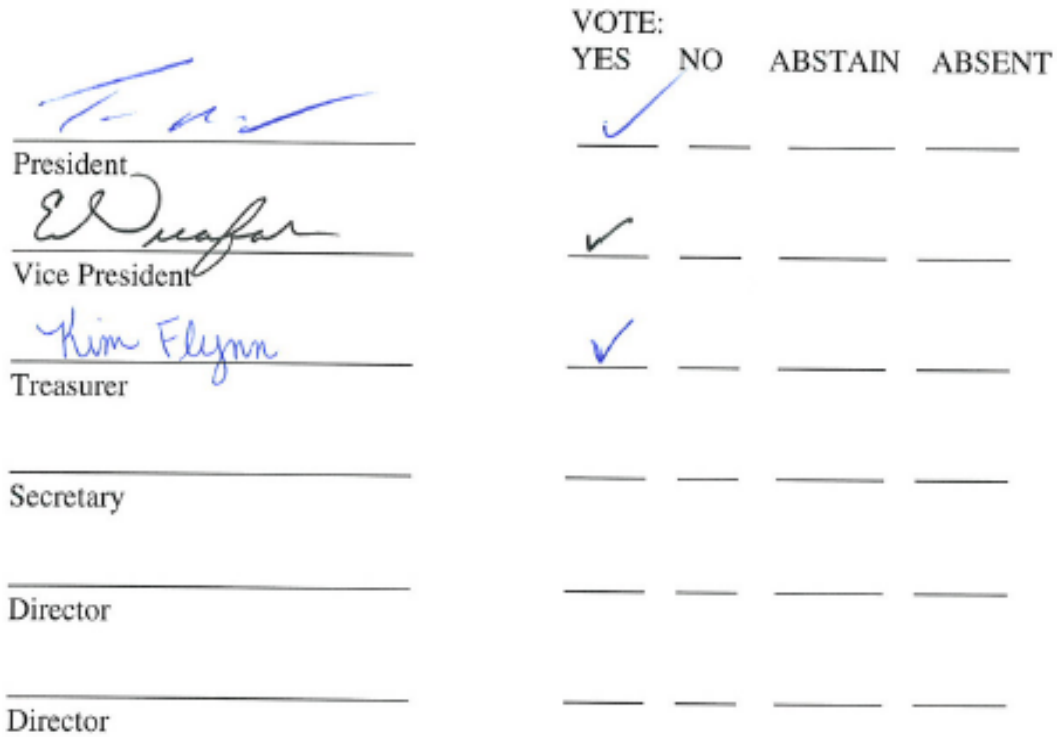 VOTE:
YES NO ABSTAIN ABSENT
President
Vice President
Kim Flynn
Treasurer
Secretary
Director
Director